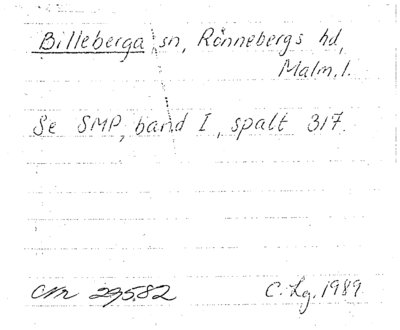 Billeberga sn, Rönnebergs hd,
Malm. l.
Se SMP, band I, spalt 317.
cm 29582 C. Lg. 1989